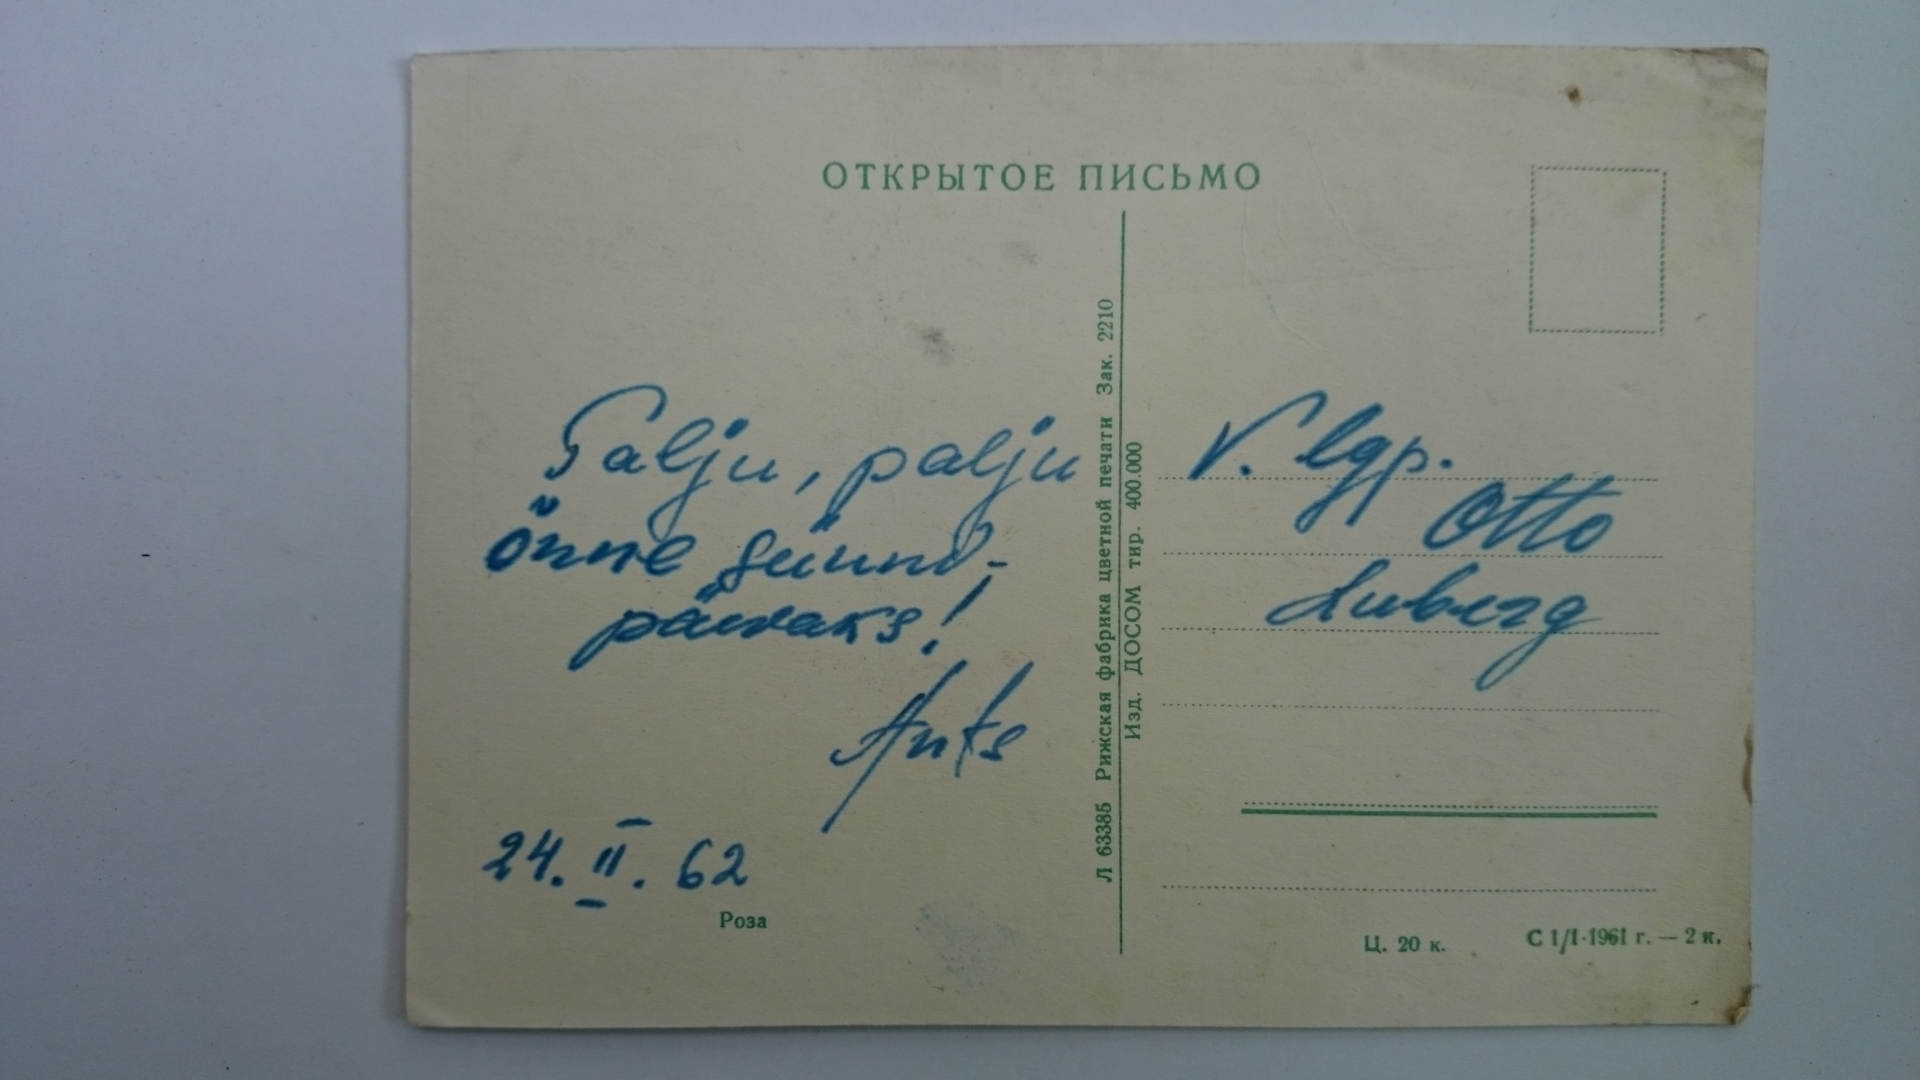 ОТКРЫТОЕ ПИСЬМО
Palju, palju
õnne sünni-
päevaks!
Ants
24. II. 62
Роза
Л 63385 Рижская фабрика цветной печати Зак. 2210
Изд. ДОСОМ тир. 400.000
V. lgp.
Otto
Luberg
Ц. 20 к.
С 1/I-1961 г. — 2 к.